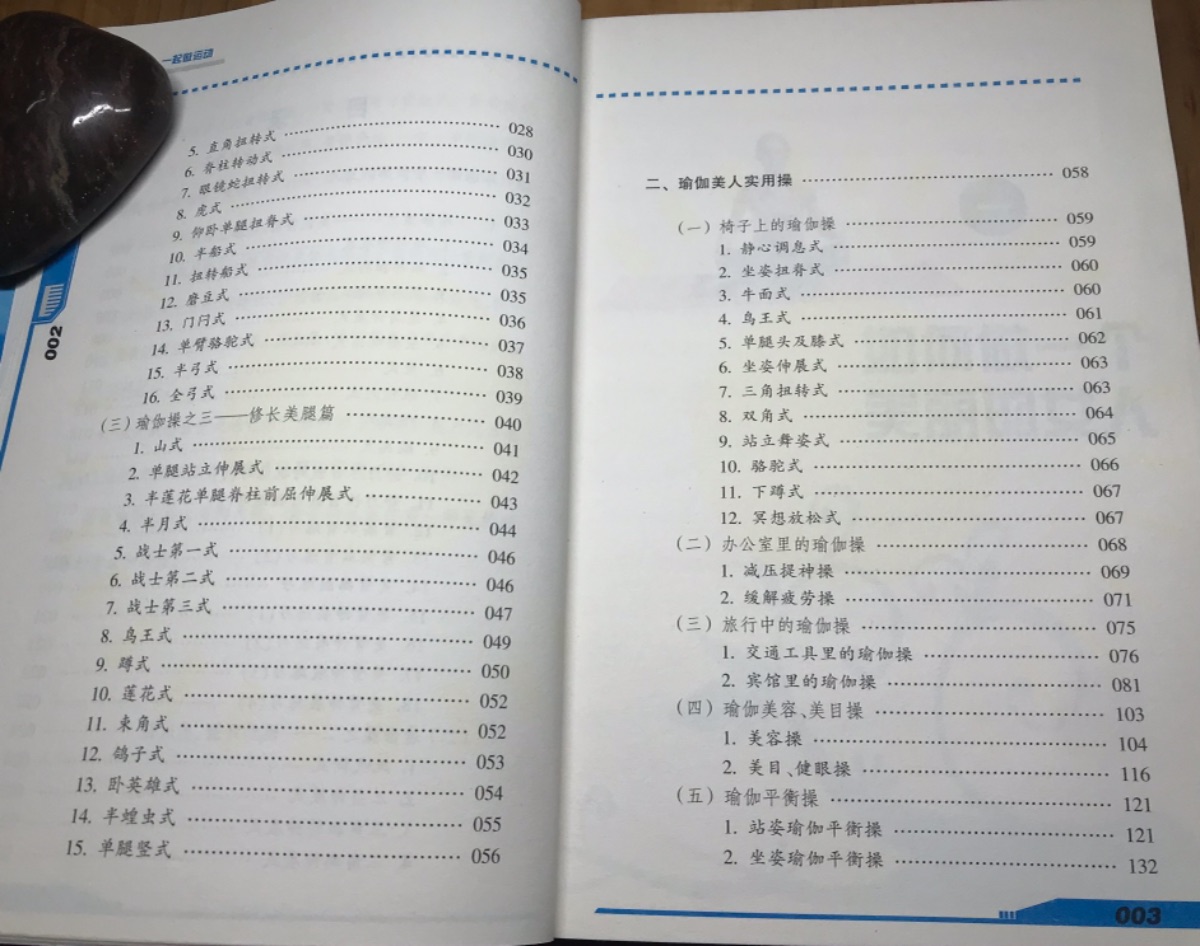 一起做运动
5. 直角扭转式 028
6. 脊柱转动式 030
7. 眼镜蛇扭转式 031
8. 虎式 032
9. 仰卧单腿扭脊式 033
10. 半船式 034
11. 扭转船式 035
12. 磨豆式 035
13. 门闩式 036
14. 单臂骆驼式 037
15. 半弓式 038
16. 全弓式 039
(三)瑜伽操之三——修长美腿篇 040
1. 山式 041
2. 单腿站立伸展式 042
3. 半莲花单腿脊柱前屈伸展式 043
4. 半月式 044
5. 战士第一式 046
6. 战士第二式 046
7. 战士第三式 047
8. 鸟王式 049
9. 蹲式 050
10. 莲花式 052
11. 束角式 052
12. 鸽子式 053
13. 卧英雄式 054
14. 半蝗虫式 055
15. 单腿竖式 056
002
二、瑜伽美人实用操 058
(一)椅子上的瑜伽操 059
1. 静心调息式 059
2. 坐姿扭脊式 060
3. 牛面式 060
4. 鸟王式 061
5. 单腿头及膝式 062
6. 坐姿伸展式 063
7. 三角扭转式 063
8. 双角式 064
9. 站立舞姿式 065
10. 骆驼式 066
11. 下蹲式 067
12. 冥想放松式 067
(二)办公室里的瑜伽操 068
1. 减压提神操 069
2. 缓解疲劳操 071
(三)旅行中的瑜伽操 075
1. 交通工具里的瑜伽操 076
2. 宾馆里的瑜伽操 081
(四)瑜伽美容、美目操 103
1. 美容操 104
2. 美目、健眼操 116
(五)瑜伽平衡操 121
1. 站姿瑜伽平衡操 121
2. 坐姿瑜伽平衡操 132
003